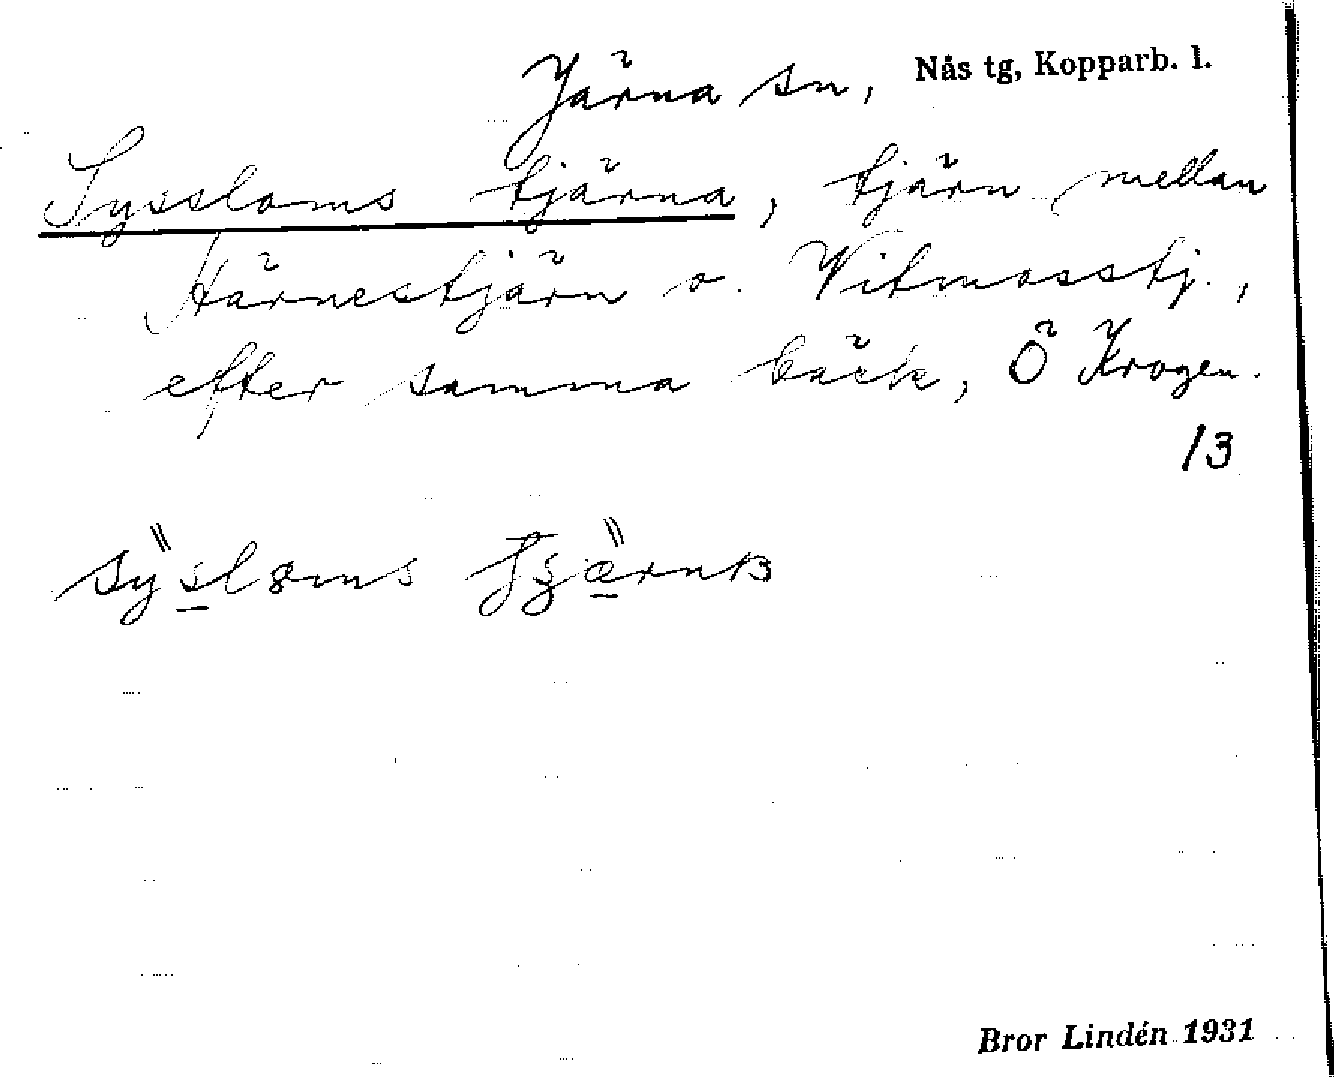 Järna sn, Nås tg, Kopparb. l.
Syssloms tjärna, tjärn mellan
Härnestjärn o. Vitmosstj.,
efter samma bäck, Ö Krogen.
13
Bror Lindén 1931